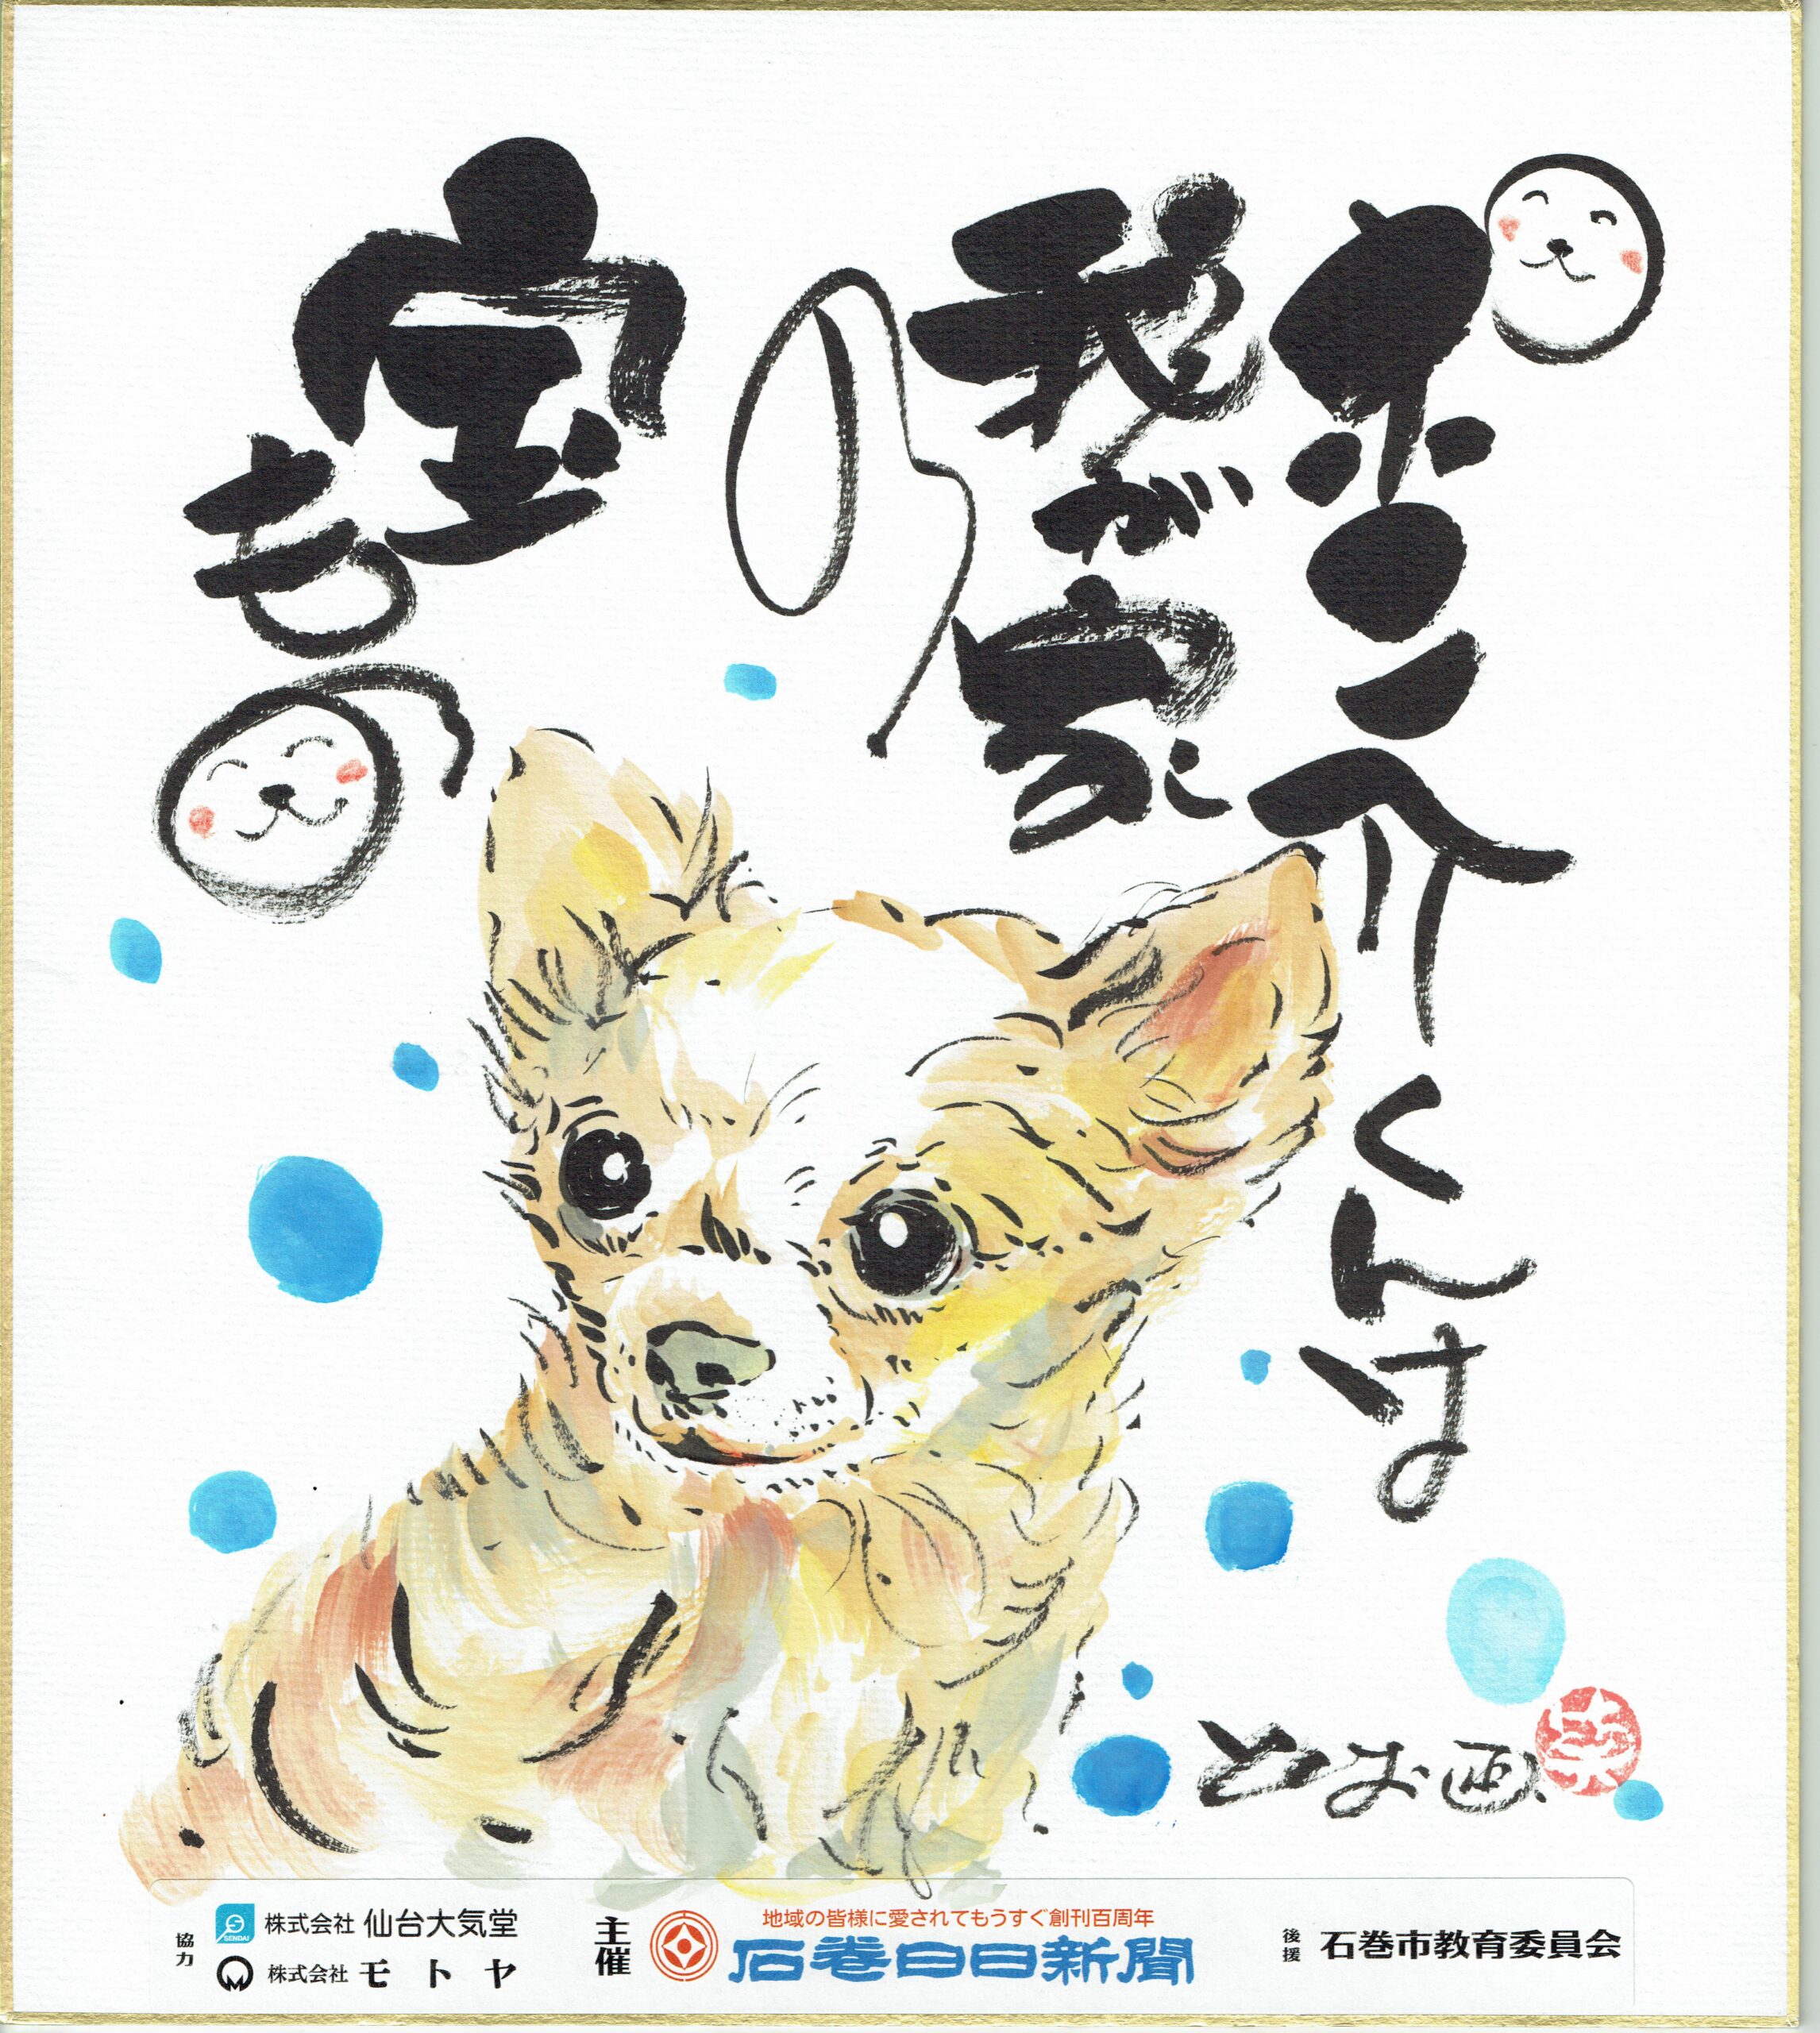 ポン介くんは
我が家の
宝もの
とお画
協力
株式会社 仙台大気堂
SENDAI
株式会社 モトヤ
主催
地域の皆様に愛されてもうすぐ創刊百周年
石巻日日新聞
後援
石巻市教育委員会